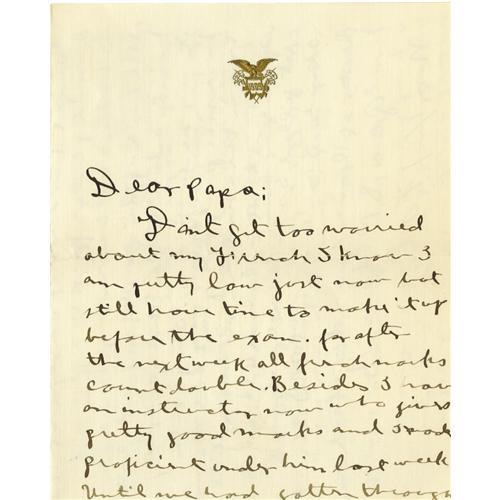 Dear Papa;
Don't get too worried
about my French I know I
am pretty low just now but
still have time to make it up
before the exam. for after
the next week all french marks
count double. Besides I have
an instructor now who gives
pretty good marks and I made
proficient under him last week
Until we had gotten through